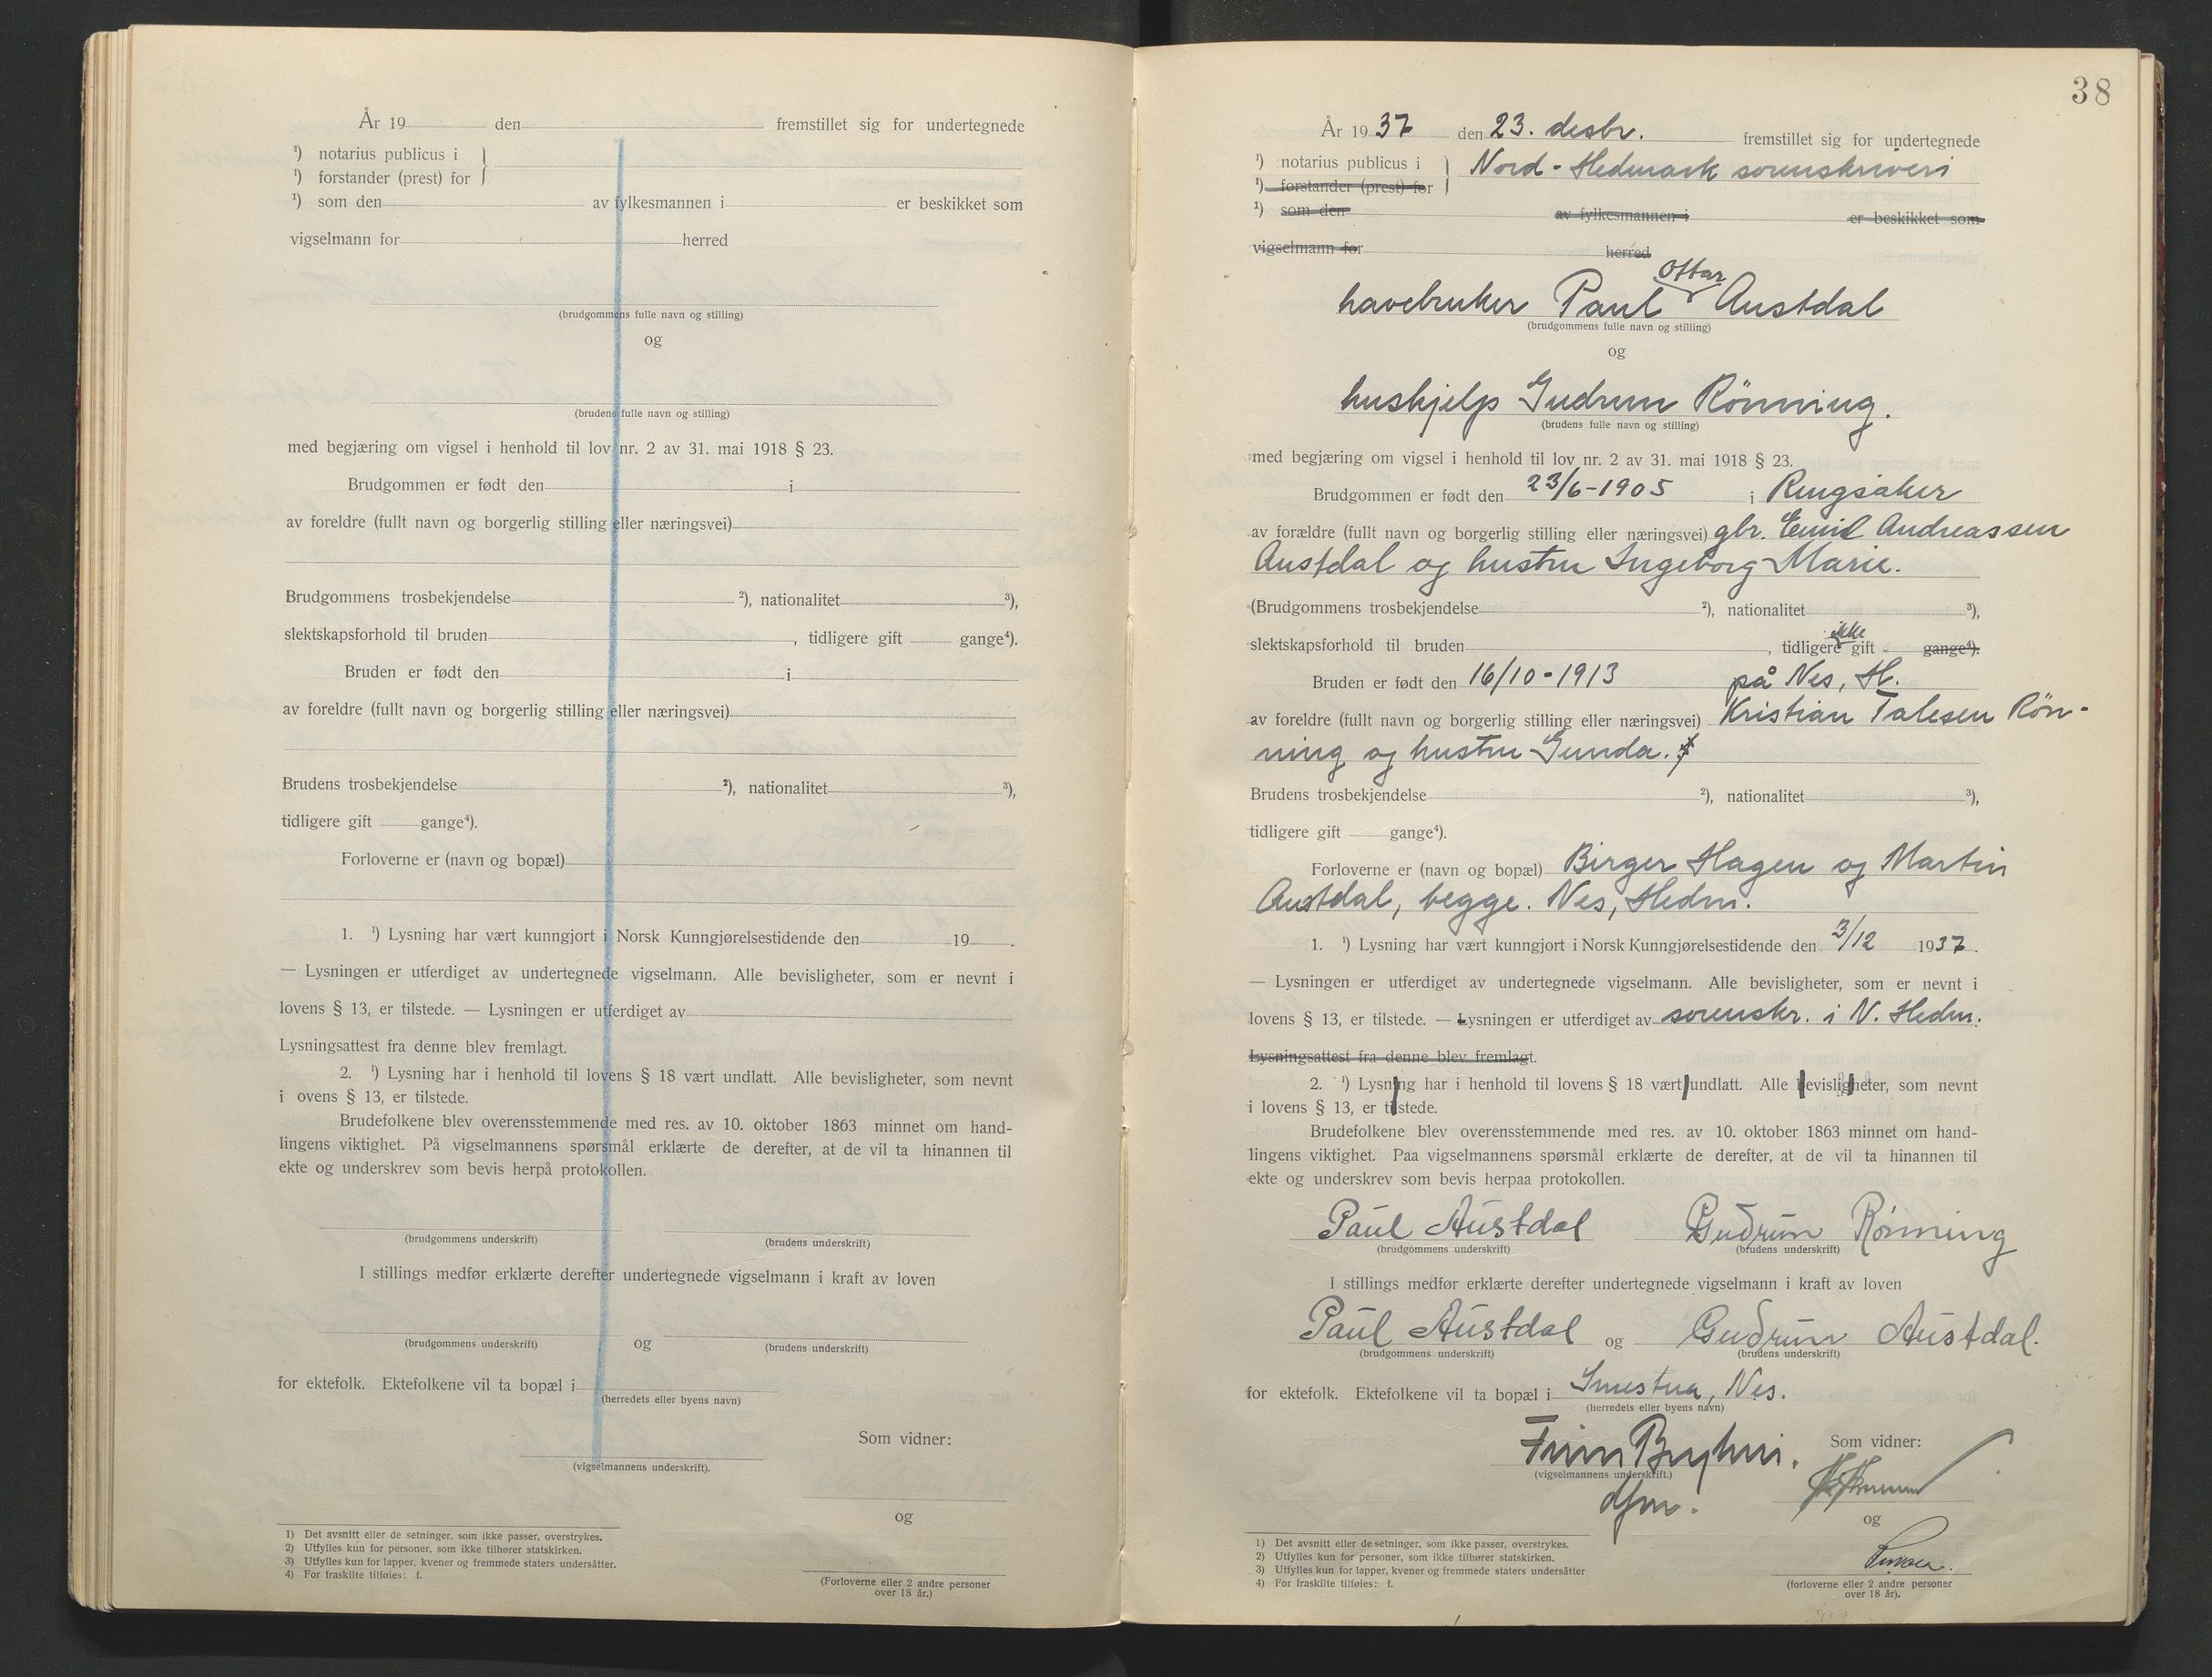 År 19 den fremstillet sig for undertegnede
¹) notarius publicus i }
¹) forstander (prest) for
¹) som den av fylkesmannen i er beskikket som
vigselmann for herred
(brudgommens fulle navn og stilling)
og
(brudens fulle navn og stilling)
med begjæring om vigsel i henhold til lov nr. 2 av 31. mai 1918 § 23.
Brudgommen er født den i
av foreldre (fullt navn og borgerlig stilling eller næringsvei)
Brudgommens trosbekjendelse ²), nationalitet ³),
slektskapsforhold til bruden , tidligere gift gange⁴).
Bruden er født den i
av foreldre (fullt navn og borgerlig stilling eller næringsvei)
Brudens trosbekjendelse ²), nationalitet ³),
tidligere gift gange⁴).
Forloverne er (navn og bopæl)
1. ¹) Lysning har vært kunngjort i Norsk Kunngjørelsestidende den 19 .
— Lysningen er utferdiget av undertegnede vigselmann. Alle bevisligheter, som er nevnt i
lovens § 13, er tilstede. — Lysningen er utferdiget av
Lysningsattest fra denne blev fremlagt.
2. ¹) Lysning har i henhold til lovens § 18 vært undlatt. Alle bevisligheter, som nevnt
i ovens § 13, er tilstede.
Brudefolkene blev overensstemmende med res. av 10. oktober 1863 minnet om hand-
lingens viktighet. På vigselmannens spørsmål erklærte de derefter, at de vil ta hinannen til
ekte og underskrev som bevis herpå protokollen.
(brudgommens underskrift) (brudens underskrift)
I stillings medfør erklærte derefter undertegnede vigselmann i kraft av loven
og
(brudgommens underskrift) (brudens underskrift)
for ektefolk. Ektefolkene vil ta bopæl i
(herredets eller byens navn)
Som vidner:
(vigselmannens underskrift).
og
1) Det avsnitt eller de setninger, som ikke passer, overstrykes.
2) Utfylles kun for personer, som ikke tilhører statskirken.
3) Utfylles kun for lapper, kvener og fremmede staters undersåtter.
4) For fraskilte tilføies: f.
(Forloverne eller 2 andre personer
over 18 år.)
38
År 1937 den 23. desbr. fremstillet sig for undertegnede
¹) notarius publicus i } Nord-Hedmark sorenskriveri
¹) forstander (prest) for
¹) som den av fylkesmannen i er beskikket som
vigselmann for herred
Ottar
havebruker Paul Austdal
(brudgommens fulle navn og stilling)
og
hushjelp Gudrun Rönning.
(brudens fulle navn og stilling)
med begjæring om vigsel i henhold til lov nr. 2 av 31. mai 1918 § 23.
Brudgommen er født den 23/6-1905 i Ringsaker
av forældre (fullt navn og borgerlig stilling eller næringsvei) gbr. Emil Andreassen
Austdal og hustru Ingeborg Marie.
(Brudgommens trosbekjendelse ²), nationalitet ³),
ikke
slektskapsforhold til bruden , tidligere gift gange⁴).
Bruden er født den 16/10-1913 på Nes, H.
av foreldre (fullt navn og borgerlig stilling eller næringsvei) Kristian Talesen Rön-
ning og hustru Gunda.
Brudens trosbekjendelse ²), nationalitet ³),
tidligere gift gange⁴).
Forloverne er (navn og bopæl) Birger Hagen og Martin
Austdal, begge. Nes, Hedm.
1. ¹) Lysning har vært kunngjort i Norsk Kunngjørelsestidende den 3/12 1937.
— Lysningen er utferdiget av undertegnede vigselmann. Alle bevisligheter, som er nevnt i
lovens § 13, er tilstede. — Lysningen er utferdiget av sorenskr. i N. Hedm.
Lysningsattest fra denne blev fremlagt.
2. ¹) Lysning har i henhold til lovens § 18 vært undlatt. Alle bevisligheter, som nevnt
i lovens § 13, er tilstede.
Brudefolkene blev overensstemmende med res. av 10. oktober 1863 minnet om hand-
lingens viktighet. Paa vigselmannens spørsmål erklærte de derefter, at de vil ta hinannen til
ekte og underskrev som bevis herpaa protokollen.
Paul Austdal Gudrun Rønning
(brudgommens underskrift) (brudens underskrift)
I stillings medfør erklærte derefter undertegnede vigselmann i kraft av loven
Paul Austdal og Gudrun Austdal.
(brudgommens underskrift) (brudens underskrift)
for ektefolk. Ektefolkene vil ta bopæl i Smestua, Nes.
(herredets eller byens navn)
Finn Bryhni. Som vidner:
(vigselmannens underskrift.)
dfm.
og
1) Det avsnitt eller de setninger, som ikke passer, overstrykes.
2) Utfylles kun for personer, som ikke tilhører statskirken.
3) Utfylles kun for lapper, kvener og fremmede staters undersåtter
4) For fraskilte tilføies: f.
(forloverne eller 2 andre personer
over 18 år).